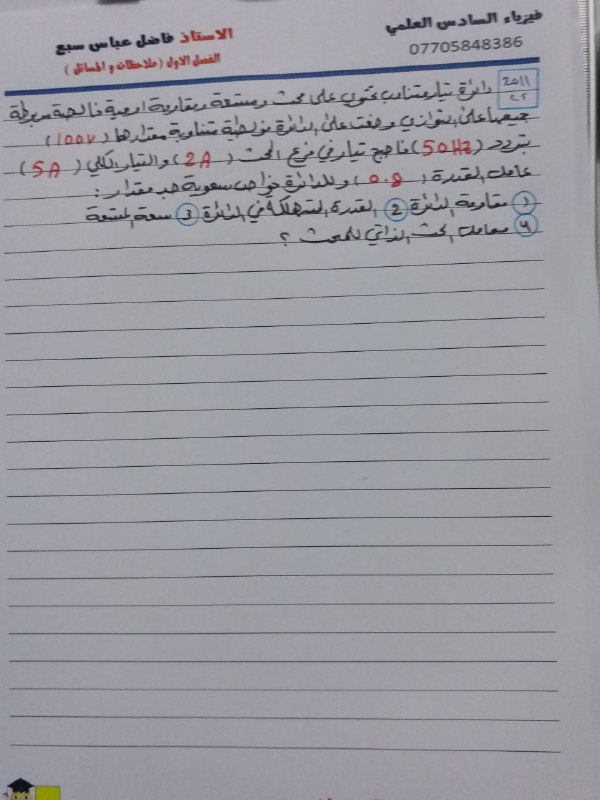 فيزياء السادس العلمي
07705848386
الاستاذ فاضل عباس سبع
الفصل الاول (ملاحظات و المسائل)
2011
د٢
دائرة تيار متناوب تحتوي على محث ومتسعة ومقاومة اومية خالصة مربوطة
جميعها على التوازي وضعت على الدائرة فولطية متناوبة مقدارها (100V)
بتردد (50Hz) فاصبح تيار في فرع المحث (2A) والتيار الكلي (5A)
عامل القدرة (0.8) وللدائرة خواص سعوية جد مقدار:
① مقاومة الدائرة ② القدرة المستهلكة في الدائرة ③ سعة المتسعة
④ معامل الحث الذاتي للمحث ؟